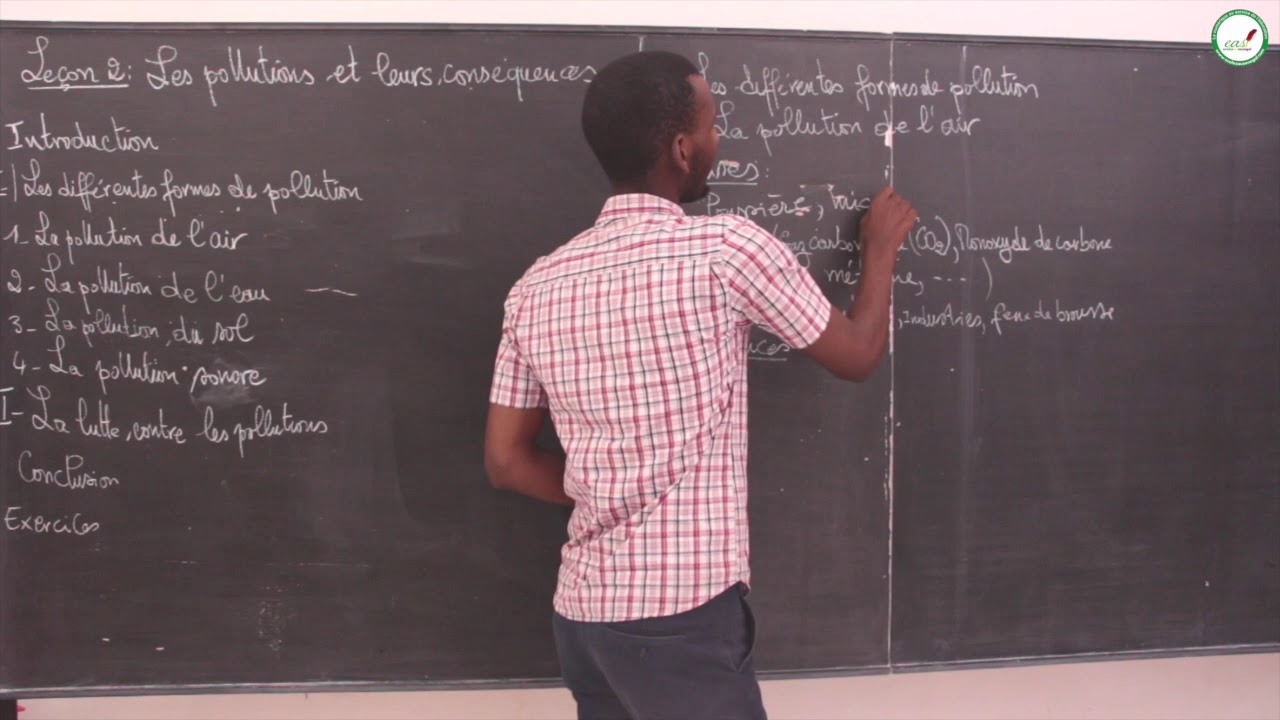 Leçon 2: Les pollutions et leurs conséquences
Introduction
I) Les différentes formes de pollution
1- La pollution de l'air
2- La pollution de l'eau
3- La pollution du sol
4- La pollution sonore
I- La lutte contre les pollutions
Conclusion
Exercices
Les différentes formes de pollution
La pollution de l'air
Poussière, mic
(CO2), Monoxyde de carbone
, ....)
, Industries, feux de brousse
eas!